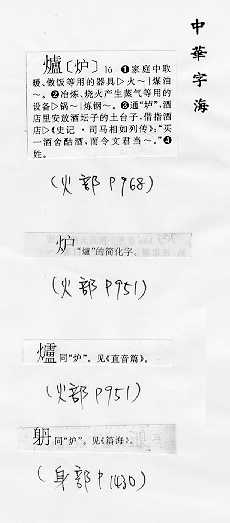 中華字海
爐〔炉〕16 ❶家庭中取
暖、做饭等用的器具▷火～|煤油
～。❷冶炼、烧火产生蒸气等用的
设备▷锅～|炼钢～。❸通“垆”,酒
店里安放酒坛子的土台子,借指酒
店▷《史记·司马相如列传》:“买
一酒舍酤酒,而令文君当～。”❹
姓。
(火部P968)
炉 “爐”的简化字。
(火部P951)
同“炉”。见《直音篇》。
(火部P951)
同“炉”。见《篇海》。
(身部P1430)